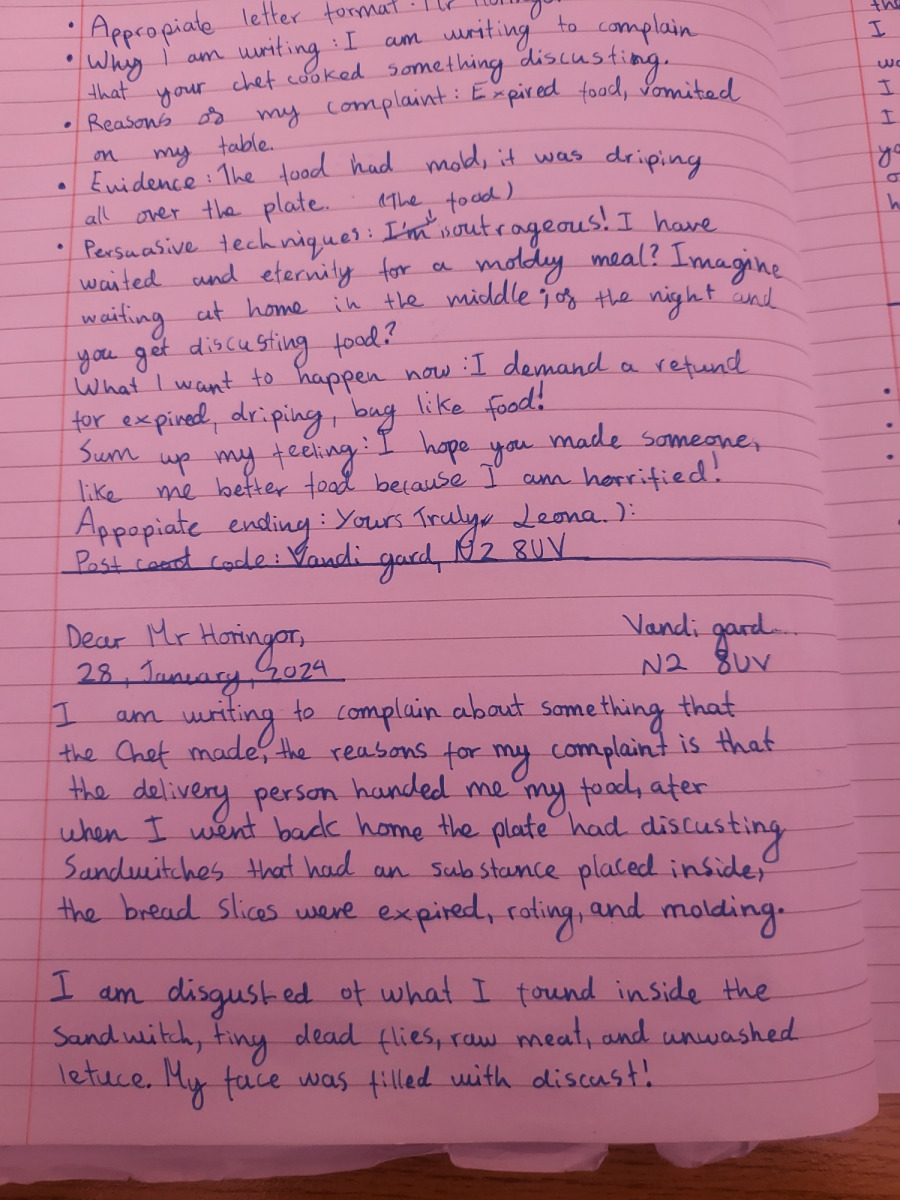 • Appropiate letter format: Mr
• Why I am writing: I am writing to complain
that your chef cooked something discusting.
• Reasons of my complaint: Expired food, vomited
on my table.
• Evidence: The food had mold, it was driping
all over the plate. (The food)
• Persuasive techniques: I'm outrageous! I have
waited and eternity for a moldy meal? Imagine
waiting at home in the middle; of the night and
you get discusting food?
What I want to happen now: I demand a refund
for expired, driping, bug like food!
Sum up my feeling: I hope you made someone,
like me better food because I am horrified!
Appopiate ending: Yours Truly, Leona. ):
Post code: Vandi gard, N2 8UV
Dear Mr Horingor, Vandi gard...
28, January, 2024 N2 8UV
I am writing to complain about something that
the Chef made, the reasons for my complaint is that
the delivery person handed me my food, afer
when I went back home the plate had discusting
Sandwitches that had an substance placed inside,
the bread slices were expired, roting, and molding.
I am disgusted of what I found inside the
Sandwitch, tiny dead flies, raw meat, and unwashed
letuce. My face was filled with discust!
the
I
wa
I
I
yo
o
h